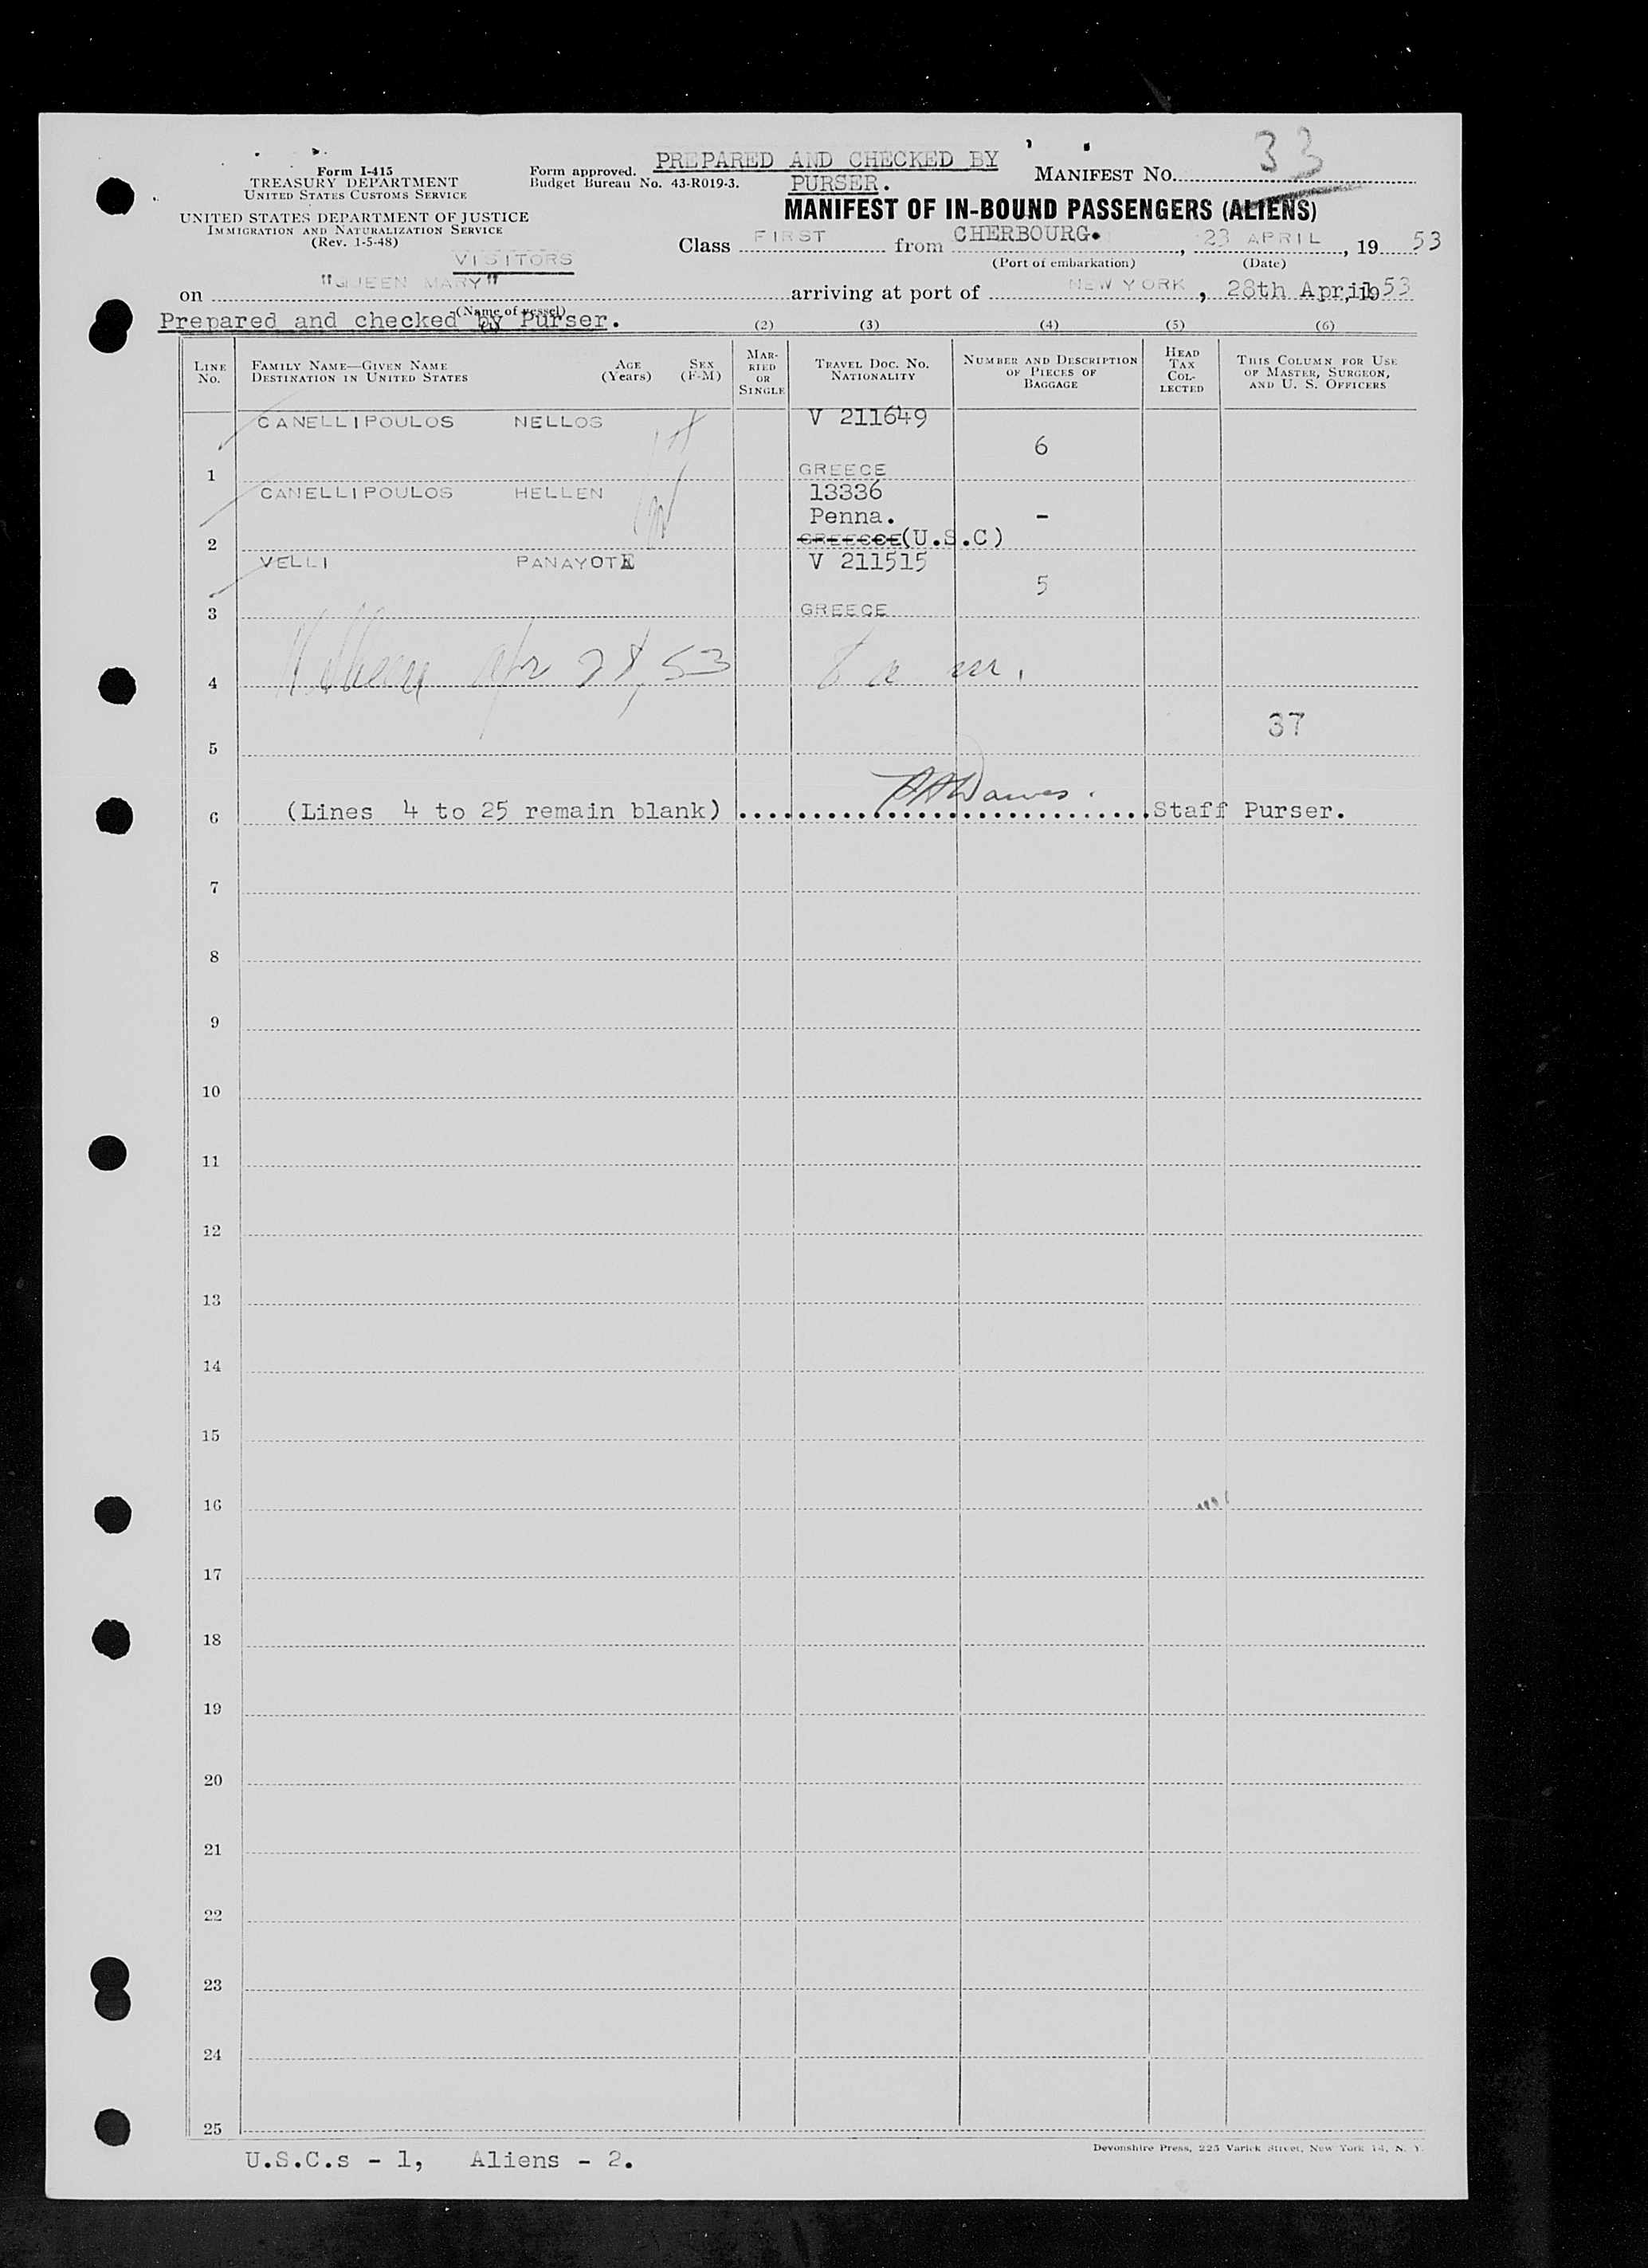 Form I-415
TREASURY DEPARTMENT
UNITED STATES CUSTOMS SERVICE
UNITED STATES DEPARTMENT OF JUSTICE
IMMIGRATION AND NATURALIZATION SERVICE
(Rev. 1-5-48)
Form approved.
Budget Bureau No. 43-R019-3.
PREPARED AND CHECKED BY
PURSER.
MANIFEST NO. 33
MANIFEST OF IN-BOUND PASSENGERS (ALIENS)
VISITORS
Class FIRST from CHERBOURG. , 23 APRIL , 19 53
(Port of embarkation) (Date)
on "QUEEN MARY" arriving at port of NEW YORK , 28th April, 1953
(Name of vessel)
Prepared and checked by Purser. (2) (3) (4) (5) (6)
LINE NO. FAMILY NAME—GIVEN NAME DESTINATION IN UNITED STATES AGE (Years) SEX (F-M) MARRIED OR SINGLE TRAVEL DOC. NO. NATIONALITY NUMBER AND DESCRIPTION OF PIECES OF BAGGAGE HEAD TAX COLLECTED THIS COLUMN FOR USE OF MASTER, SURGEON, AND U. S. OFFICERS
CANELLIPOULOS NELLOS V 211649
6
1 GREECE
CANELLIPOULOS HELLEN 13336
Penna. -
2 GREECE(U.S.C)
VELLI PANAYOTE V 211515
5
3 GREECE
4 Apr 28, 53
37
5
6 (Lines 4 to 25 remain blank) Staff Purser.
7
8
9
10
11
12
13
14
15
16
17
18
19
20
21
22
23
24
25
Devonshire Press, 225 Varick Street, New York 14, N. Y.
U.S.C.s - 1, Aliens - 2.